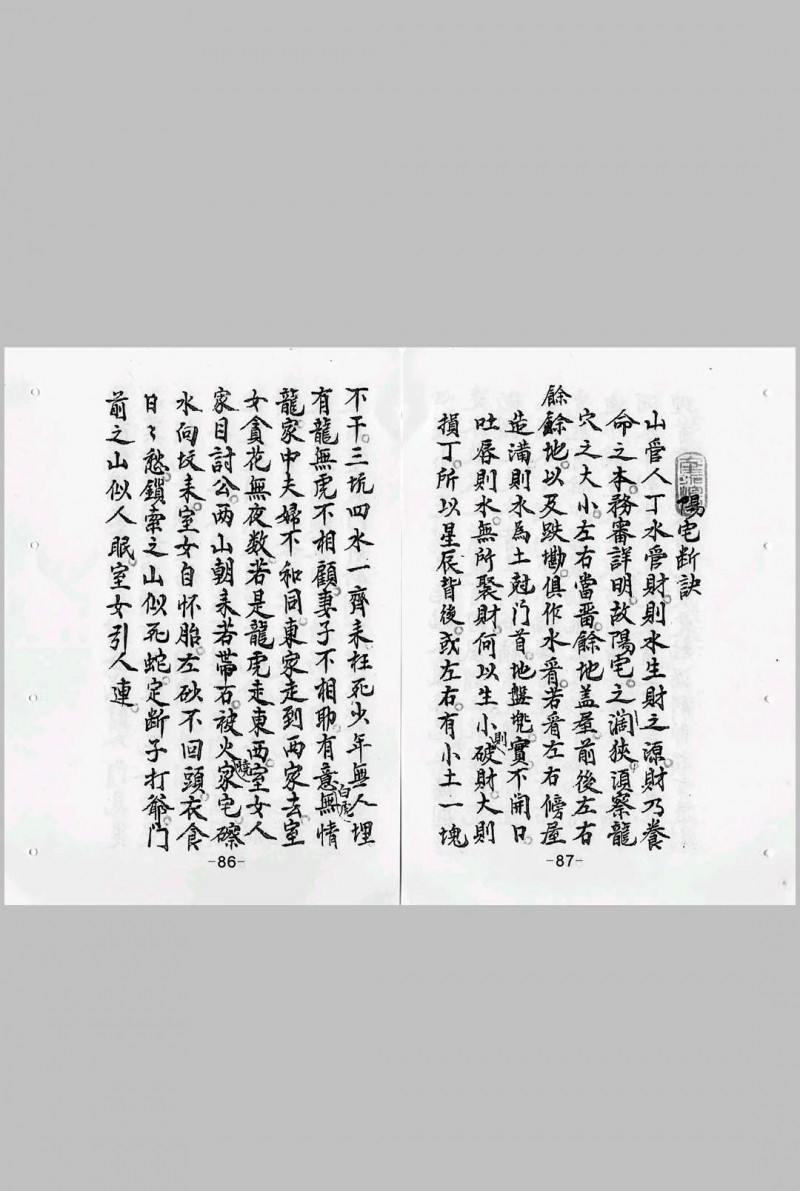 不干。三坑四水一齊来。枉死少年無人埋。
有龍無虎不相顧。妻子不相助。有意無情白虎
龍家中夫婦不和同。東家走到两家去。室
女貪花無夜数。若是龍虎走東西。室女人
家自討公。两山朝来若帶石。被火燒家宅。礤
水向坟来。室女自怀胎。左砂不回頭。衣食
日々愁。鎖索之山似死蛇。定斷子打爺。門
前之山似人眠。室女引人連。
-86-
陽宅斷訣
山管人丁水管財。則水生財之源。財乃養
命之本。務審詳明。故陽宅之濶狹。須察龍
穴之大小。左右當畱餘地。盖屋前後左右
餘餘地。以及跌墈。俱作水看。若看左右傍屋
造满。則水為土尅。門首地盤兠實。不開口
吐唇。則水無所聚。財何以生。小則破財。大則
損丁。所以星辰背後。或左右有小土一塊
-87-